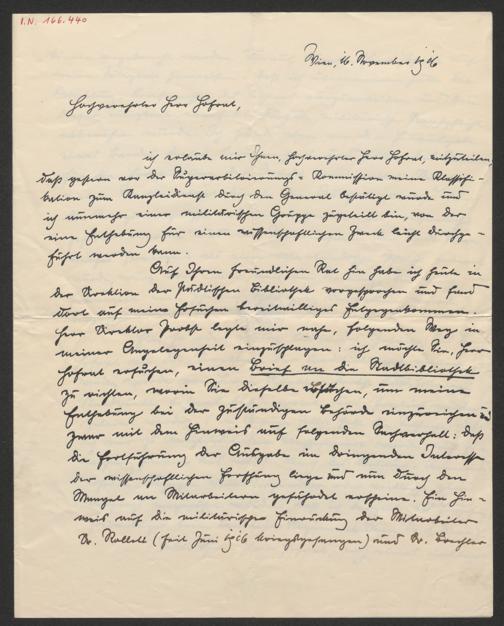 I.N. 166.440
Wien, 16. November 1916
Hochverehrter Herr Hofrat,
ich erlaube mir Ihnen, hochverehrter Herr Hofrat, mitzuteilen,
daß gestern vor der Superarbitrierungs-Kommission meine Klassifi-
kation zum Kanzleidienst durch den General bestätigt wurde und
ich nunmehr einer militärischen Gruppe zugeteilt bin, von der
eine Enthebung für einen wissenschaftlichen Zweck leicht durchge-
führt werden kann.
Auf Ihren freundlichen Rat hin habe ich heute in
der Direktion der Städtischen Bibliothek vorgesprochen und fand
dort auf meine Ersuchen bereitwilliges Entgegenkommen.
Herr Direktor Probst legte mir nahe, folgenden Weg in
meiner Angelegenheit einzuschlagen: ich möchte Sie, Herr
Hofrat ersuchen, einen Brief an die Stadtbibliothek
zu richten, worin Sie dieselbe ersuchen, um meine
Enthebung bei der zuständigen Behörde einzureichen u.
zwar mit dem Hinweis auf folgenden Sachverhalt: daß
die Fortführung der Ausgabe im dringenden Interesse
der wissenschaftlichen Forschung liege und nun durch den
Mangel an Mitarbeitern gefährdet erscheine. Ein Hin-
weis auf die militärische Einrückung der Mitarbeiter
Dr. Rollett (seit Juni 1916 kriegsgefangen) und Dr.